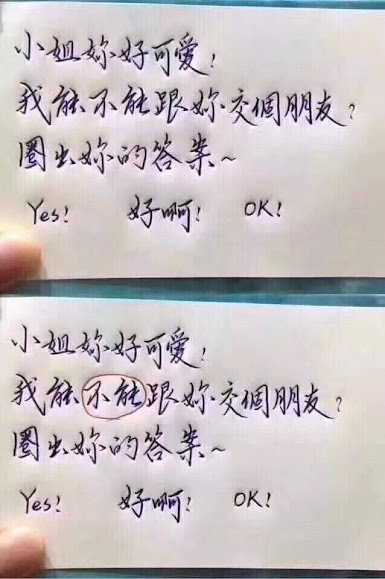 小姐妳好可愛!
我能不能跟妳交個朋友?
圈出妳的答案~
Yes! 好啊! OK!
小姐妳好可愛!
我能不能跟妳交個朋友?
圈出妳的答案~
Yes! 好啊! OK!